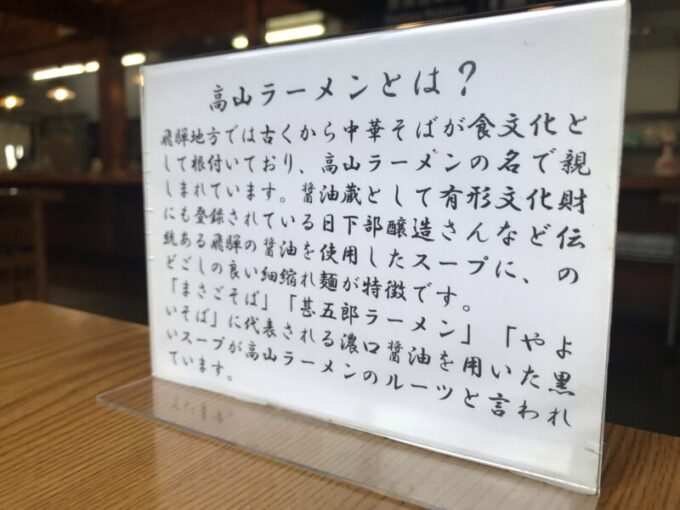 高山ラーメンとは?
飛騨地方では古くから中華そばが食文化と
して根付いており、高山ラーメンの名で親
しまれています。醤油蔵として有形文化財
にも登録されている日下部醸造さんなど伝
統ある飛騨の醤油を使用したスープに、の
どごしの良い細縮れ麺が特徴です。
「まさごそば」「甚五郎ラーメン」「やよ
いそば」に代表される濃口醤油を用いた黒
いスープが高山ラーメンのルーツと言われ
ています。